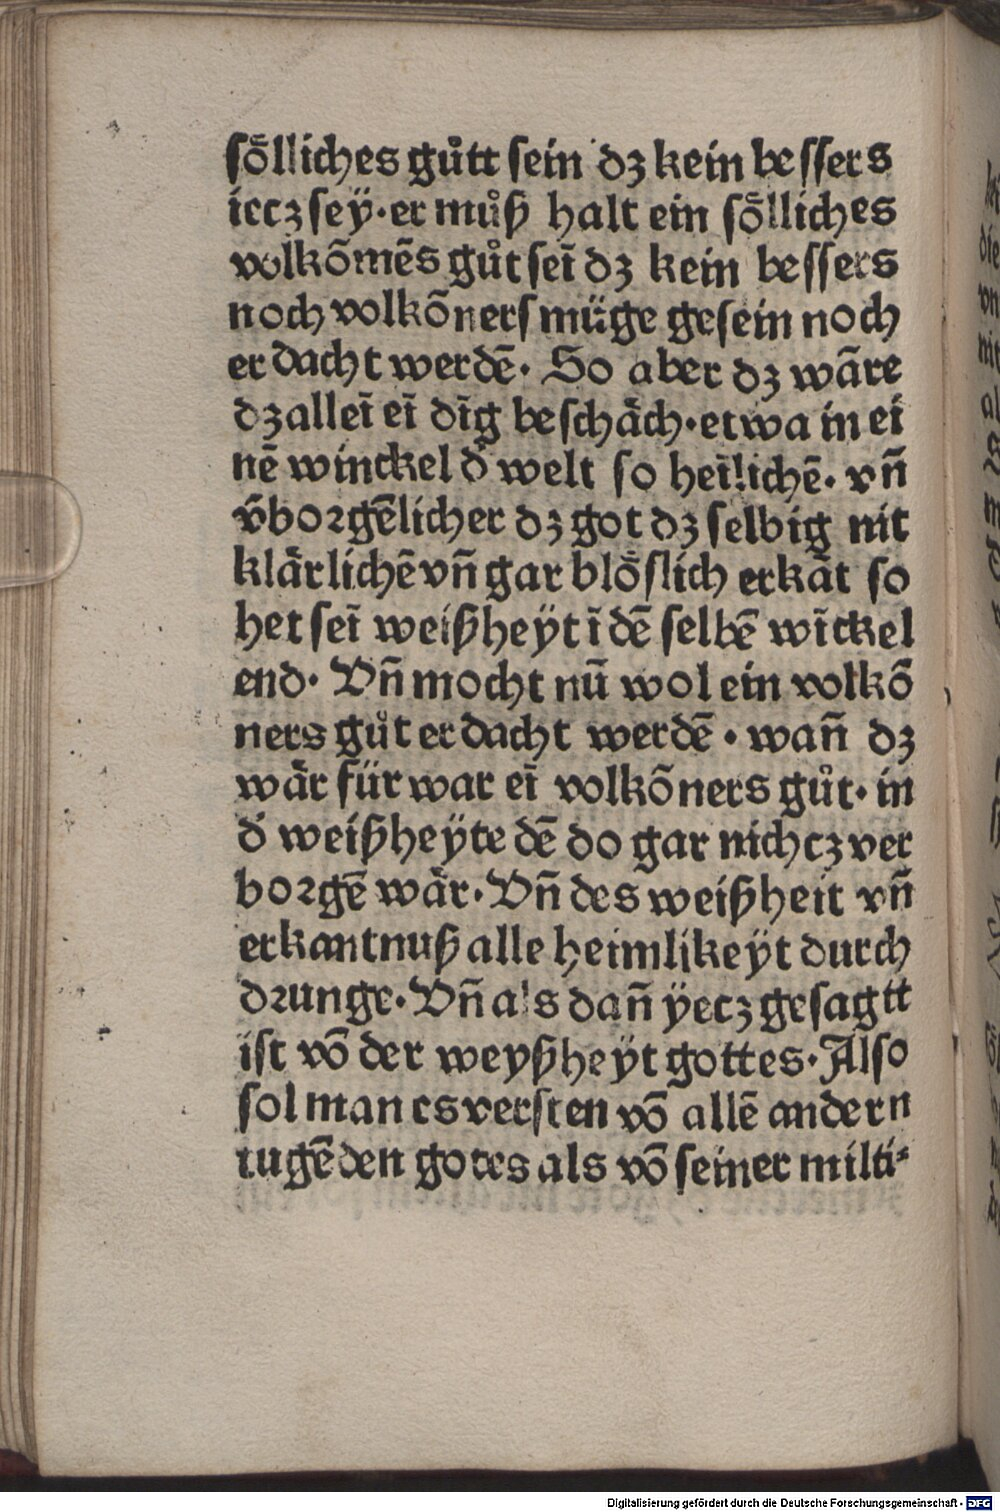 soͤlliches guͦtt sein dz kein bessers
iecz sey·er muͦß halt ein soͤlliches
volkōmēs guͦt seī dz kein bessers
noch volkōners müge gesein noch
erdacht werdē· So aber dz wāre
dz alleī eī dīg beschäch·etwa in ei
nē winckel d̄ welt so heīlichē· vn̄
v̄borgēlicher dz got dz selbig nit
klärlichē vn̄ gar bloͤslich erkāt so
het seī weißheÿt ī dē selbē wīckel
end· Vn̄ mocht nū wol ein volkō
ners guͦt erdacht werdē · wan̄ dz
wär fürwar eī volkōners guͦt· in
d̄ weißheÿte dē do gar nichcz ver
borgē wär· Vn̄ des weißheit vn̄
erkantnuß alle heimlikeÿt durch
drunge· Vn̄ als dan̄ ÿecz gesagtt
ist vō der weyßheÿt gottes· Also
sol man es versten vō allē andern
tugēden gotes als vō seiner milti⸗
Digitalisierung gefördert durch die Deutsche Forschungsgemeinschaft · DFG